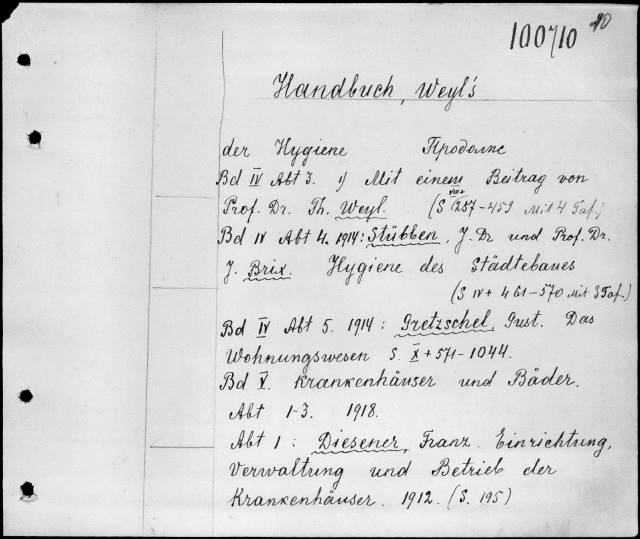 100710 20
Handbuch, Weyl's
der Hygiene Продолже
Bd IV Abt 3. 1) Mit einem Beitrag von
Prof. Dr. Th. Weyl. (S VIII+ 287-459 Mit 4 Taf.)
Bd IV Abt 4. 1914: Stübben, J. Dr und Prof. Dr.
J. Brix. Hygiene des Städtebaues
(S IV + 461-570 Mit 3 Taf.)
Bd IV Abt 5. 1914: Gretzschel, Gust. Das
Wohnungswesen S. X + 571-1044.
Bd V. Krankenhäuser und Bäder.
Abt 1-3. 1918.
Abt 1: Diesener, Franz. Einrichtung,
Verwaltung und Betrieb der
Krankenhäuser. 1912. (S. 195)